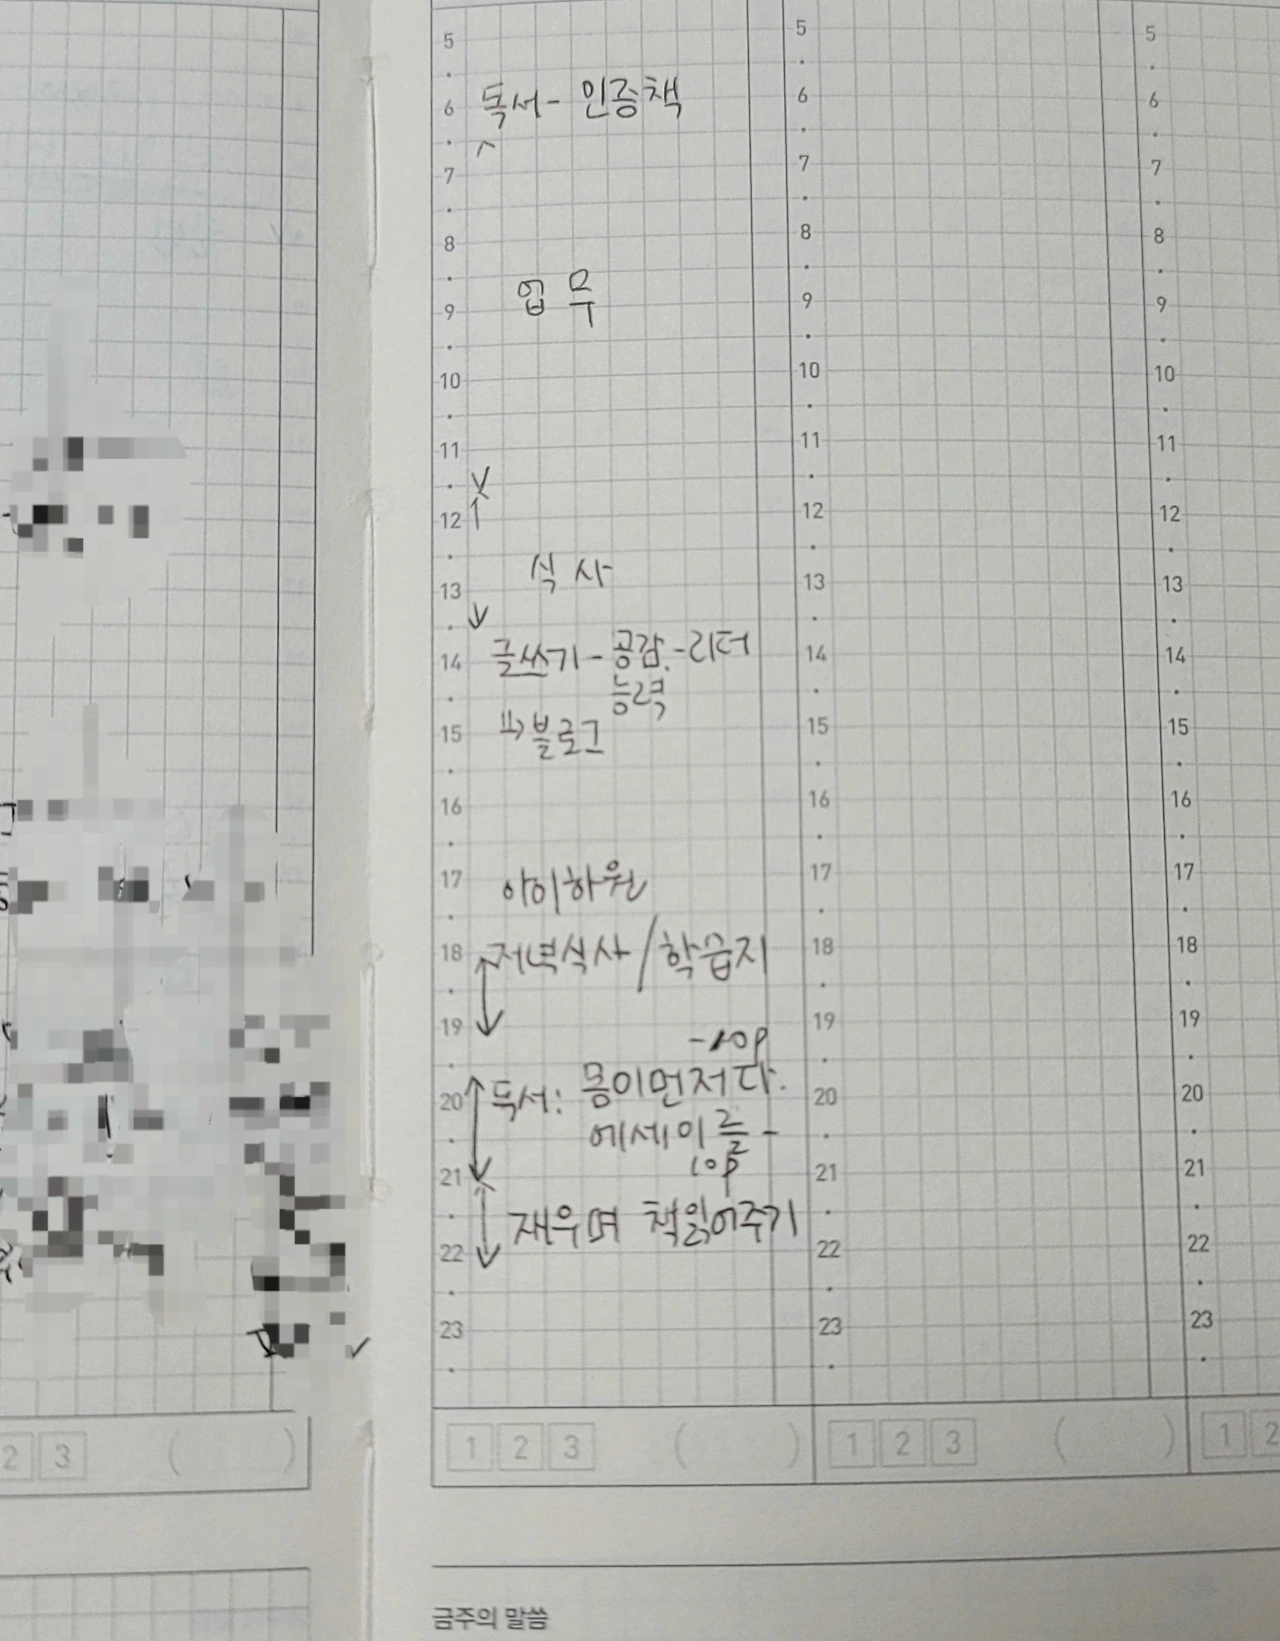 5
6
7
8
9
10
11
12
13
14
15
16
17
18
19
20
21
22
23
독서- 인증책
업무
식사
글쓰기-공감-리더
능력
=>블로그
아이하원
저녁식사/학습지
-10p
독서: 몸이먼저다.
에세이를-
10p
재우며 책읽어주기
1 2 3 ( )
5
6
7
8
9
10
11
12
13
14
15
16
17
18
19
20
21
22
23
1 2 3 ( )
5
6
7
8
9
10
11
12
13
14
15
16
17
18
19
20
21
22
23
1 2
2 3 ( )
금주의 말씀